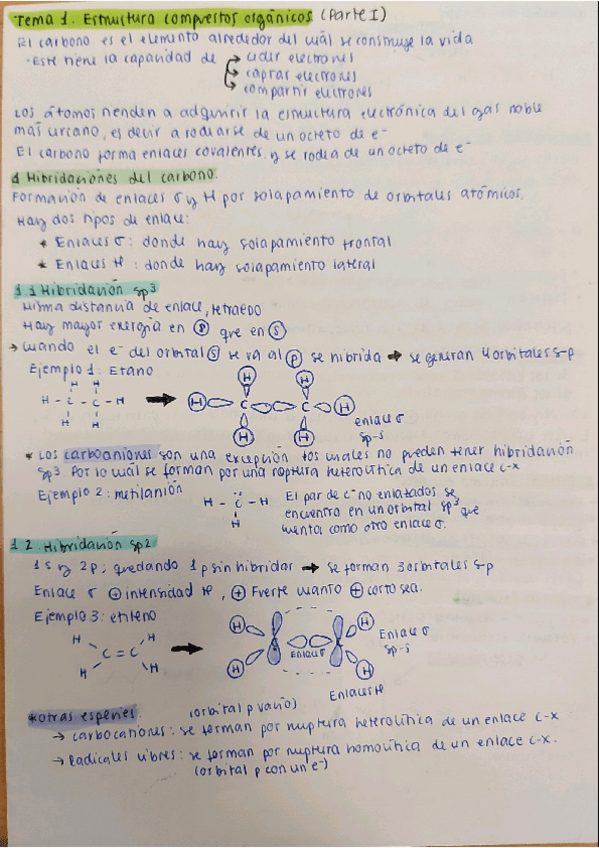 Tema 1. Estructura compuestos orgánicos (Parte I)
El carbono es el elemento alrededor del cuál se construye la vida
· Este tiene la capacidad de → ceder electrones
→ captar electrones
→ compartir electrones
Los átomos tienden a adquirir la estructura electrónica del gas noble
más cercano, es decir a rodearse de un octeto de e⁻
El carbono forma enlaces covalentes y se rodea de un octeto de e⁻
1 Hibridaciones del carbono.
Formación de enlaces σ y π por solapamiento de orbitales atómicos.
Hay dos tipos de enlace:
* Enlaces σ: donde hay solapamiento frontal
* Enlaces π: donde hay solapamiento lateral
1.1 Hibridación sp³
Misma distancia de enlace, tetraedo
Hay mayor energía en p que en s
→ Cuando el e⁻ del orbital s se va al p se hibrida → se generan 4 orbitales s-p
Ejemplo 1: Etano
H H
H - C - C - H
H H
H H
H C C H
H H
enlace σ
sp-s
* Los carboaniones son una excepción los cuales no pueden tener hibridación
sp³. Por lo cuál se forman por una ruptura heterolítica de un enlace c-x
Ejemplo 2: metilanión
H - C̈ - H
H
El par de e⁻ no enlazados se
encuentra en un orbital sp³ que
cuenta como otro enlace σ.
1.2. Hibridación sp2
1 s y 2p; quedando 1 p sin hibridar → se forman 3 orbitales s-p
Enlace σ ⊕ intensidad π, ⊕ Fuerte cuanto ⊕ corto sea.
Ejemplo 3: etileno
H H
C = C
H H
H H
H H
Enlace σ
Enlace σ
sp-s
Enlace π
*otras especies.
(orbital p vacío)
→ carbocationes: se forman por ruptura heterolítica de un enlace c-x
→ Radicales libres: se forman por ruptura homolítica de un enlace c-x.
(orbital p con un e⁻)